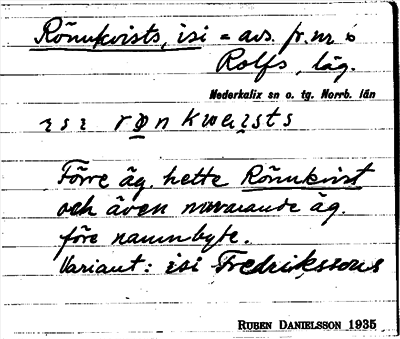 Rönnkvists, isi = avs. fr. nr 6
Rolfs, läg.
Nederkalix sn o. tg. Norrb. län
ɪsɪ rønkweɪsts
Förre äg. hette Rönnkvist
och även nuvarande äg.
före namnbyte.
Variant: isi Fredrikssons
RUBEN DANIELSSON 1935